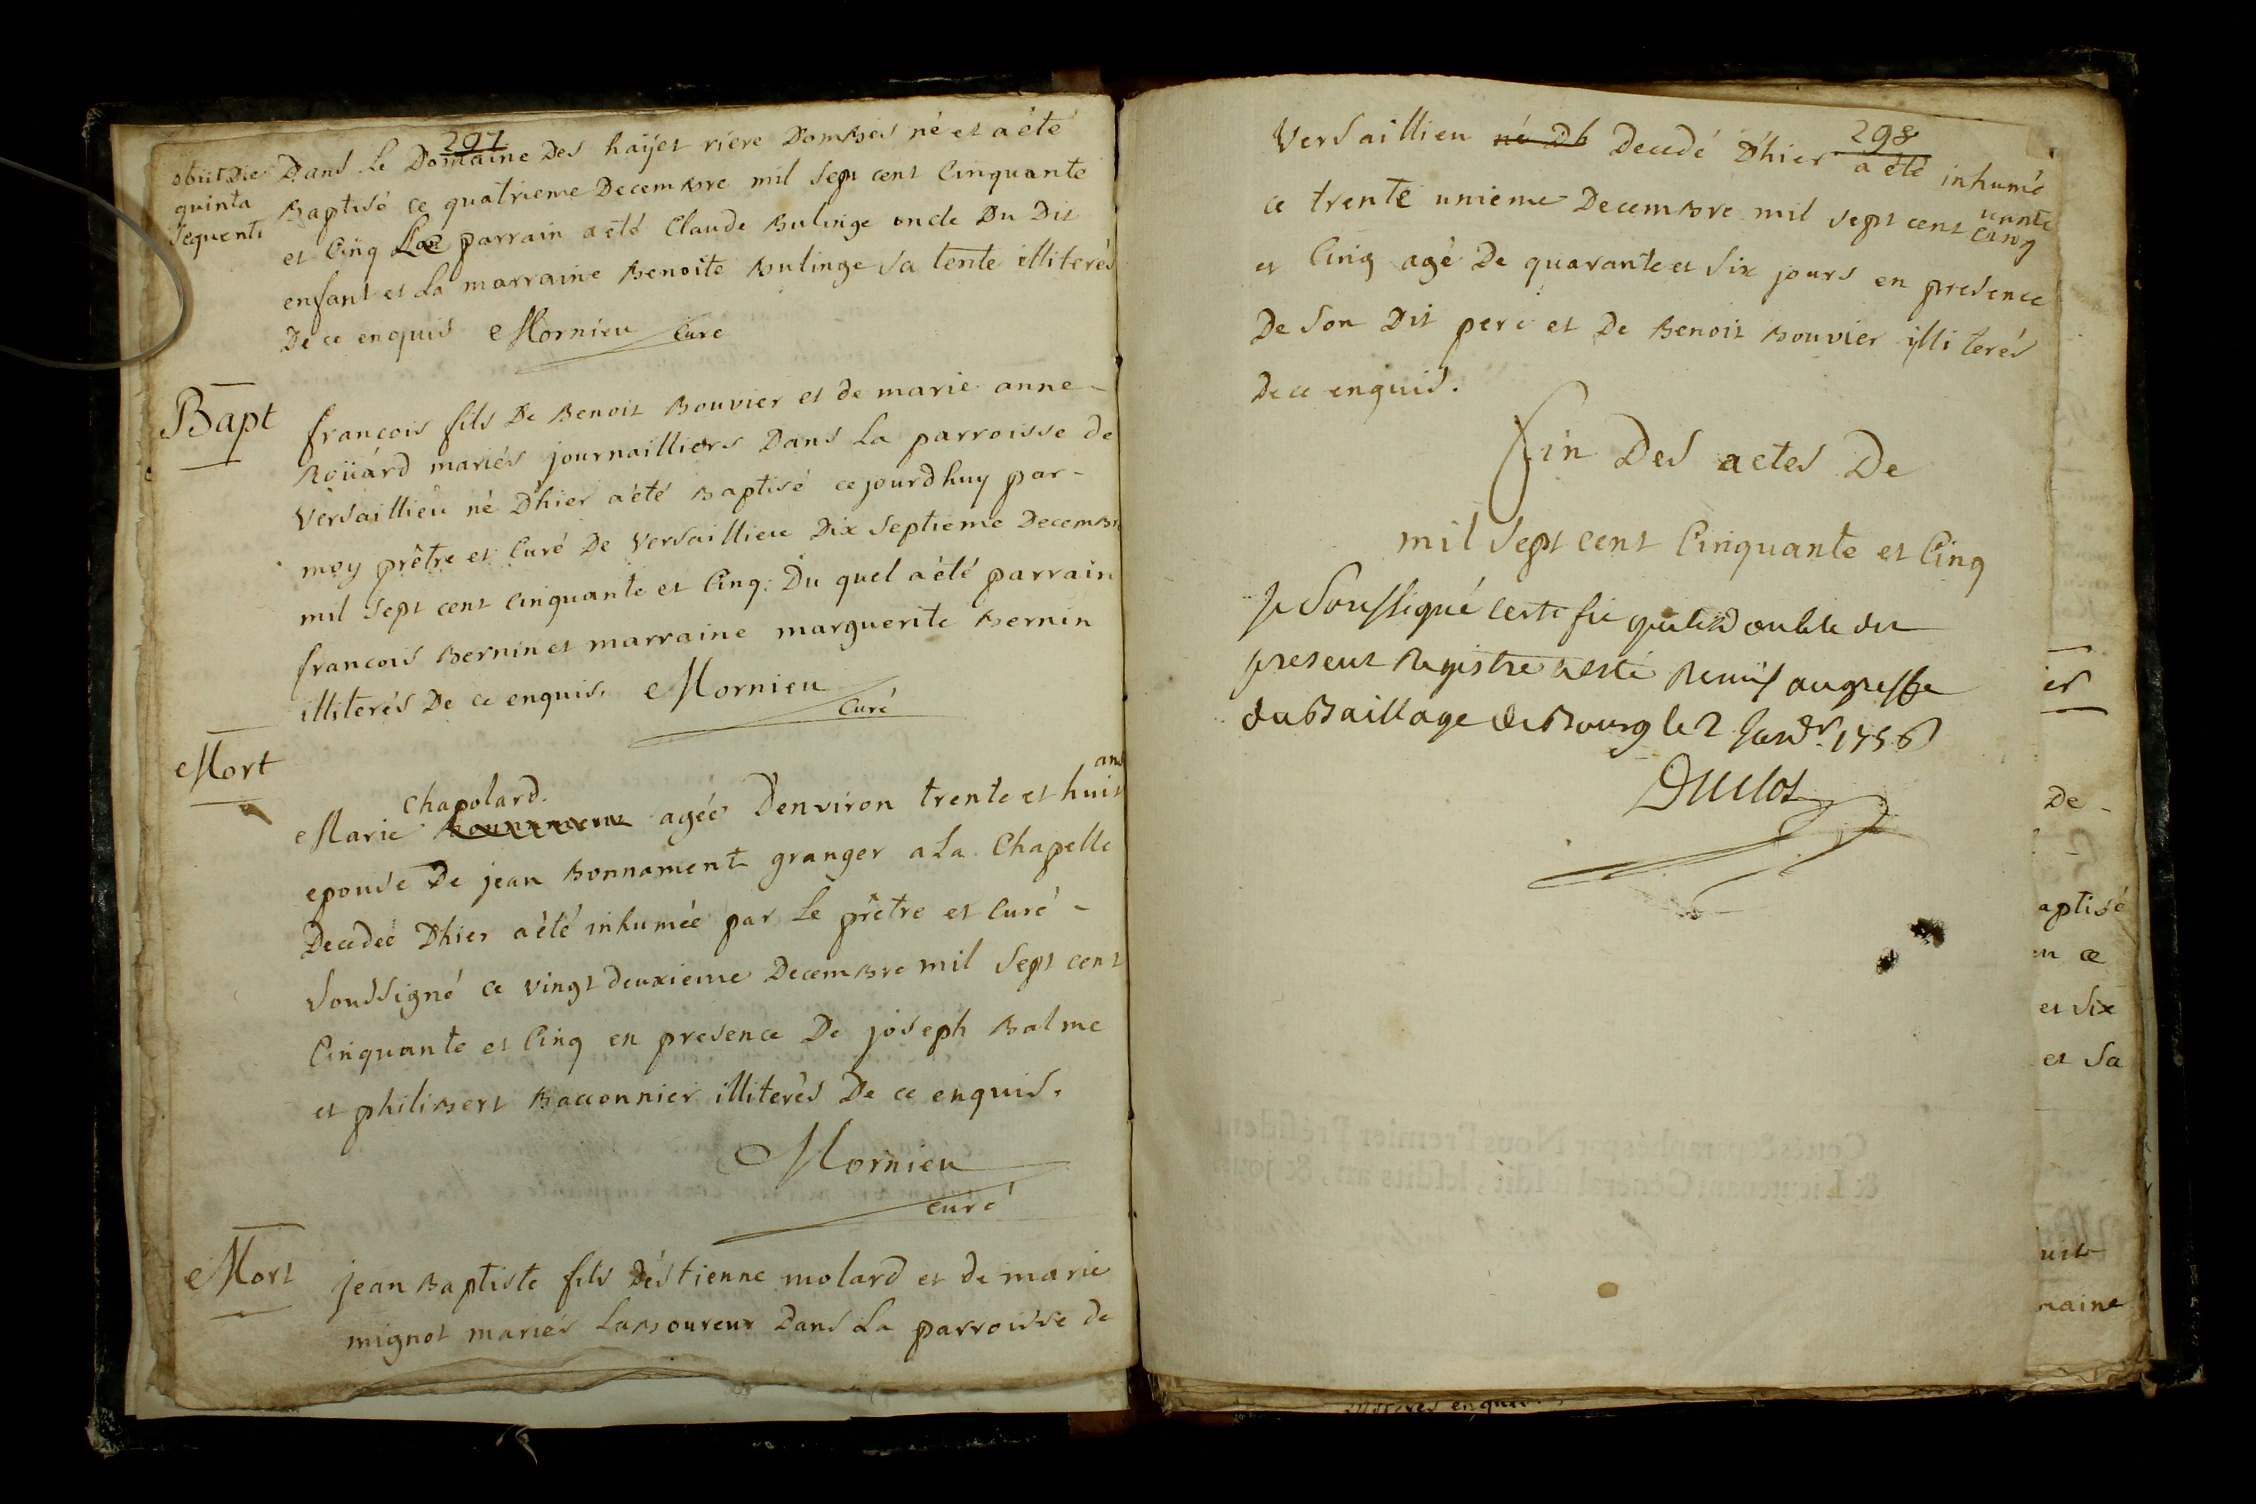 297
obiit Die
quinta
sequenti
Dans Le Domaine Des haÿes riere Dombes né et a été
Baptisé ce quatrieme Decembre mil sept cent Cinquante
et Cinq Le parrain a eté Claude Bulinge oncle Du Dit
enfant et La marraine Benoite Bulinge sa tente illiterés
De ce enquis Mornieu Curé
Bapt
françois fils De Benoit Bouvier et de marie anne
Roüard mariés journailliers Dans La parroisse de
Versaillieu né D'hier a été Baptisé cejourdhuy par-
moy prêtre et Curé De Versaillieu Dix septieme Decembre
mil sept cent cinquante et Cinq. Du quel a été parrain
françois Bernin et marraine marguerite Bernin
illiterés De ce enquis. Mornieu
Curé
Mort
Chapolard. ans
Marie agée D'environ trente et huit
epouse De jean Bonnament granger a La Chapelle
Decedeé D'hier a été inhumée par Le prêtre et Curé -
Soussigné ce vingt deuxieme Decembre mil sept cent
Cinquante et Cinq en presence De joseph Balme
et philibert Bacconnier illiterés De ce enquis.
Mornieu
Curé
Mort
jean Baptiste fils D'éstienne molard et de marie
mignot mariés Laboureur Dans La parroisse de
298
Versaillieu né Dh Decedé D'hier a été inhumé
ce trente unieme Decembre mil sept cent Cinq
uante
et Cinq agé De quarante et six jours en presence
De son Dit pere et De Benoit Bouvier illiterés
De ce enquis.
fin Des actes De
mil sept cent Cinquante et Cinq
Je Soussigné certifie que le double du
present Registre a esté Remis au greffe
du Baillage de Bourg le 2 Janvr. 1756
Duclos
er
De -
aptisé
n ce
et six
et sa
raine